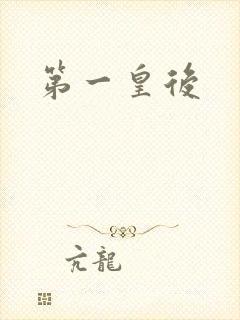 第一皇後
亢龍